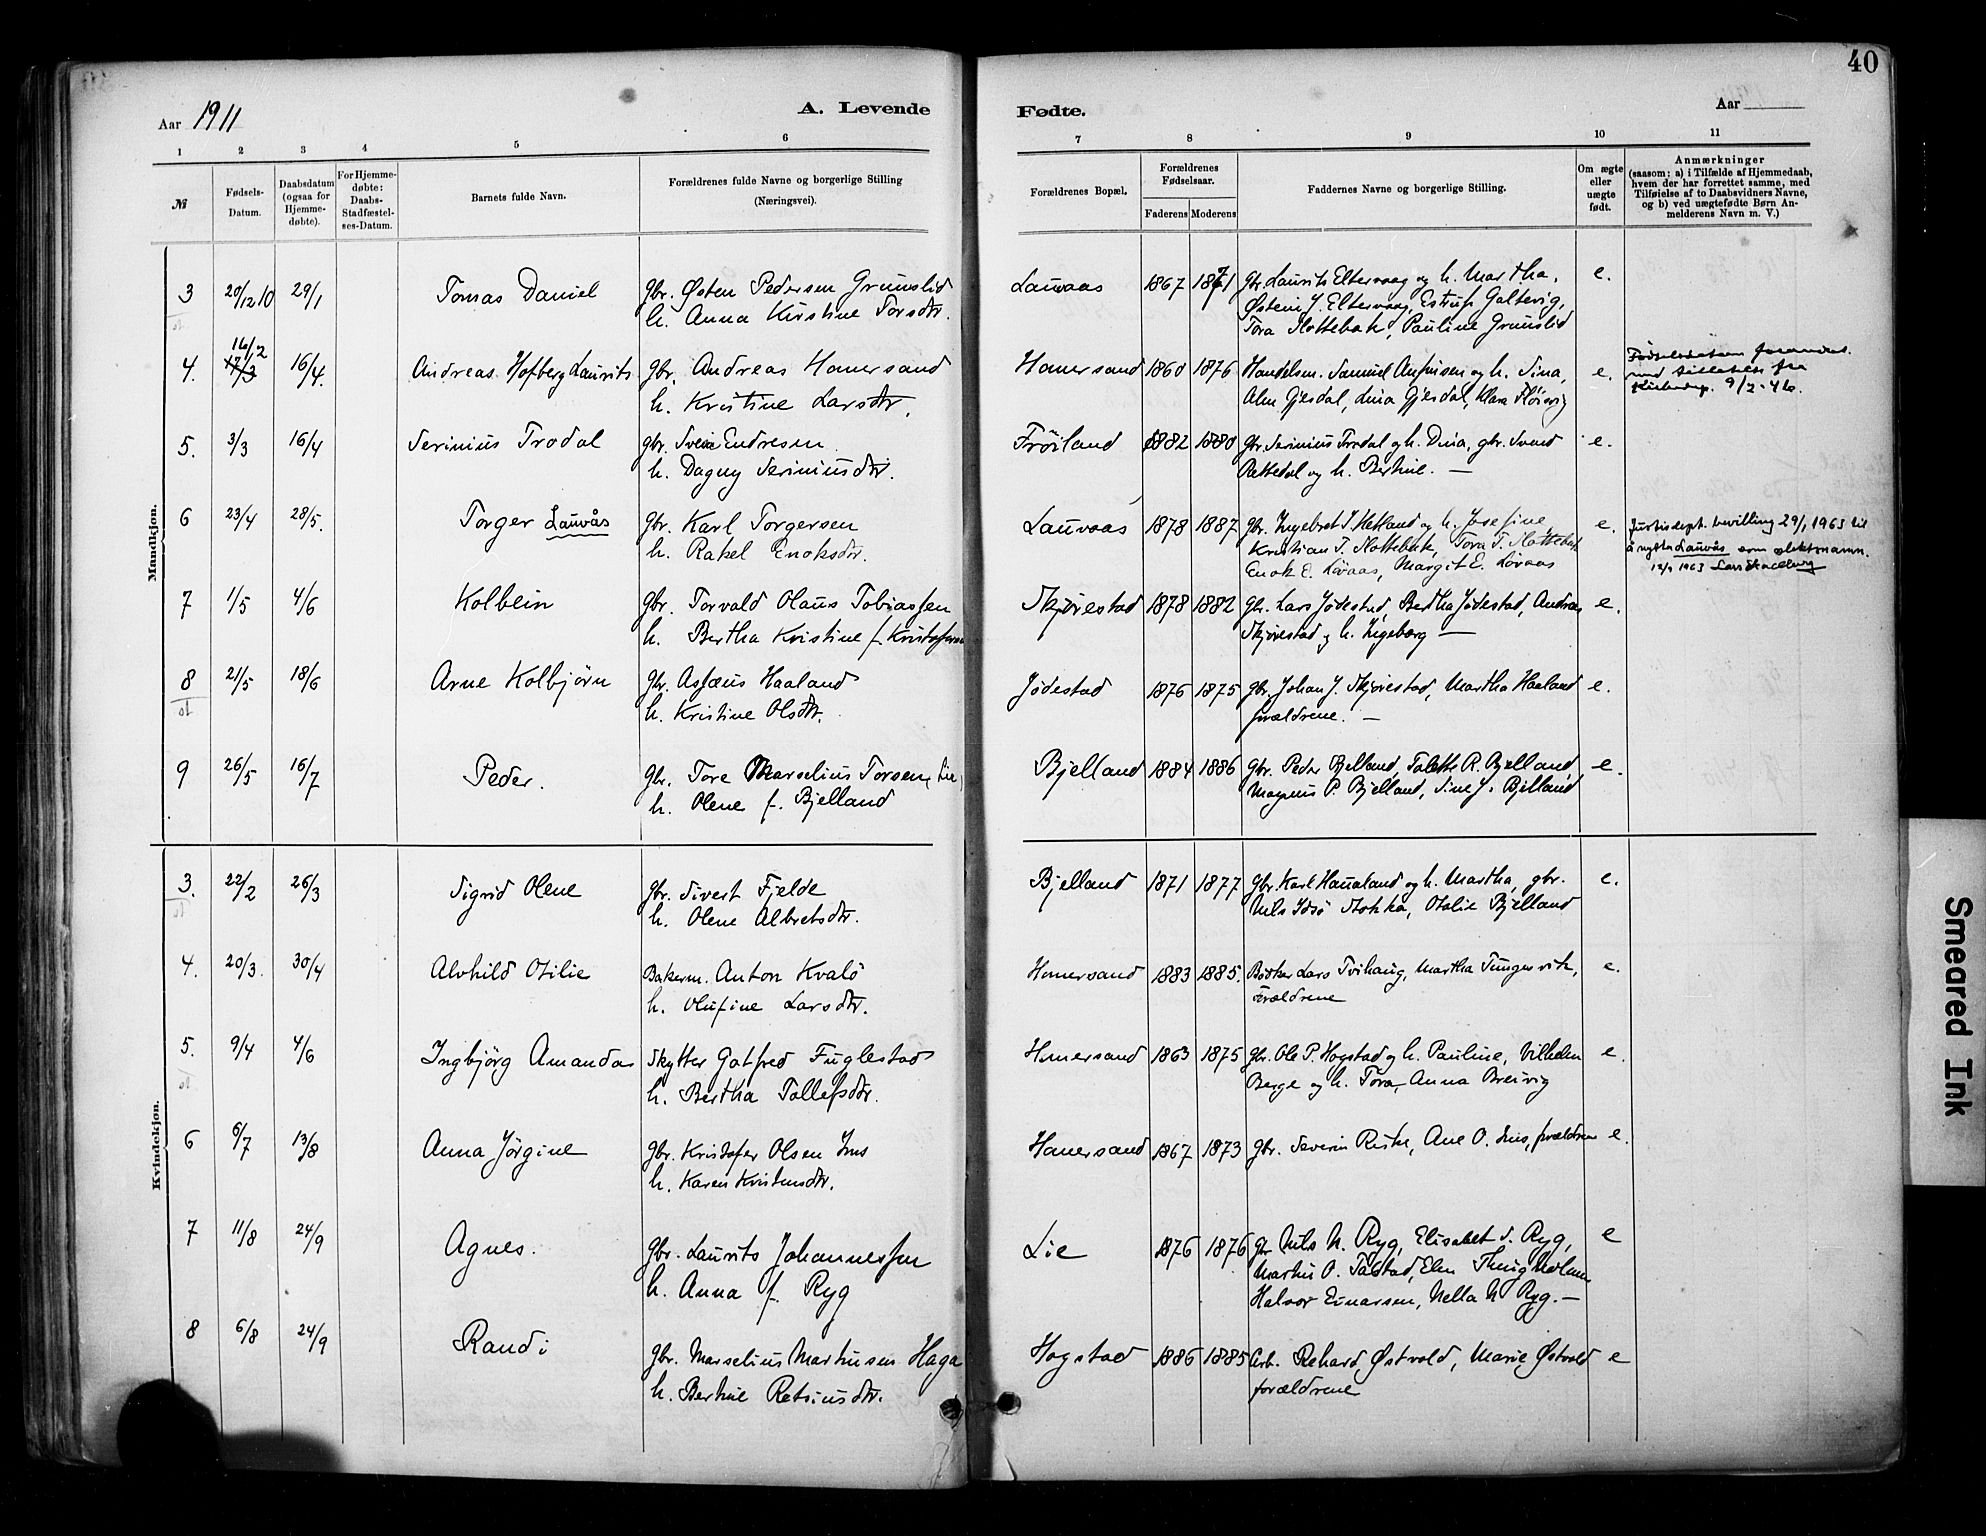 40
Aar 1911
A. Levende
Fødte.
Aar
1 2 3 4 5 6 7 8 9 10 11
№
Fødsels-
Datum.
Daabsdatum
(ogsaa for
Hjemme-
døbte).
For Hjemme-
døbte:
Daabs-
Stadfæstel-
ses-Datum.
Barnets fulde Navn.
Forældrenes fulde Navne og borgerlige Stilling
(Næringsvei).
Forældrenes Bopæl.
Forældrenes
Fødselsaar.
Faderens Moderens
Faddernes Navne og borgerlige Stilling.
Om ægte
eller
uægte
født.
Anmærkninger
(saasom: a) i Tilfælde af Hjemmedaab,
hvem der har forrettet samme, med
Tilføielse af to Daabsvidners Navne,
og b) ved uægtefødte Børn An-
melderens Navn m. V.)
Mandkjøn.
3 20/12 10 29/1 Tomas Daniel
gbr. Østen Pedersen Grunslid
h. Anna Kirstine Torsdtr.
Lauvaas 1867 1871
gbr. Laurits Eltervaag og h. Martha,
Østein J. Eltervaag, Estrup Galtevig,
Tora Slottebak, Pauline Grunslid
e.
4. 16/2 17/3 16/4. Andreas Hofberg Laurits
gbr. Andreas Hanersand
h. Kristine Larsdtr.
Hanersand 1860 1876
Handelsm. Samuel Anfinsen og h. Sina,
Alm Gjesdal, Lina Gjesdal, Klara Fløisvig
e.
Fødselsdatoen forandret
med tilladelse fra
Kirkedep. 9/2-46.
5. 3/3 16/4 Serinius Trodal
gbr. Svein Endresen
h. Dagny Seriniusdtr.
Frøiland 1882 1880
gbr. Serinius Trodal og h. Dina, gbr. Svend
Rettedal og h. Berthine. —
e.
6 23/4 28/5. Torger Lauvås
gbr. Karl Torgersen
h. Rakel Enoksdtr.
Lauvaas 1878 1887
gbr. Ingebret T. Hetland og h. Josefine,
Kristian T. Slottebak, Tora T. Slottebak
Enok E. Løvaas, Margit E. Løvaas
e.
Justisdept. bevilling 29/1 1963 til
å nytta Lauvås som slektsnamn.
12/9 1963
7 1/5 4/6 Kolbein
gbr. Torvald Olaus Tobiassen
h. Bertha Kristine f. Kristofersen
Skjørestad 1878 1882
gbr. Lars Jødestad, Bertha Jødestad, Andreas
Skjørestad og h. Ingeborg —
e.
8 21/5 18/6 Arne Kolbjørn
gbr. Asfæus Haaland
h. Kristine Olsdtr.
Jødestad 1876 1875
gbr. Johan J. Skjørestad, Martha Haaland
forældrene. —
e.
9 26/5 16/7 Peder.
gbr. Tore Marselius Torsen, Lie,
h. Olene f. Bjelland
Bjelland 1884 1886
gbr. Peder Bjelland, Talette R. Bjelland,
Magnus P. Bjelland, Sine J. Bjelland
e.
Kvindekjøn.
3. 22/2 26/3 Sigrid Olene
gbr. Sivert Fjelde
h. Olene Albretsdtr.
Bjelland 1871 1877
gbr. Karl Haualand og h. Martha, gbr.
Nils Idsø Stokka, Otalie Bjelland
e.
4. 20/3. 30/4 Alvhild Otilie
Bakerm. Anton Kvalø
h. Olufine Larsdtr.
Hanersand 1883 1885.
Bødker Lars Tvihaug, Martha Tungesvik,
forældrene
e.
5. 9/4 4/6 Ingbjörg Amanda
Skytter Gotfred Fuglestad
h. Bertha Tollefsdtr.
Hanersand 1863 1875
gbr. Ole P. Hogstad og h. Pauline, Vilhelm
Berge og h. Tora, Anna Breivig
e.
6 6/7 13/8 Anna Jörgine
gbr. Kristofer Olsen Ims
h. Karen Kristensdtr.
Hanersand 1867 1873
gbr. Severin Riske, Ane O. Ims, forældrene
e.
7 11/8 24/9 Agnes.
gbr. Laurits Johannessen
h. Anna f. Ryg
Lie 1876 1876
gbr Nils N. Ryg, Elisabet S. Ryg,
Martin O. Talstad, Elen
Halvor Einarsen, Nella N Ryg. —
e
8 6/8 24/9 Randi
gbr. Marselius Martinsen Haga
h. Berthine Retsiusdtr.
Hogstad 1886 1885
Arb. Rehard Østvold, Marie Østvold
forældrene
e
Smeared Ink